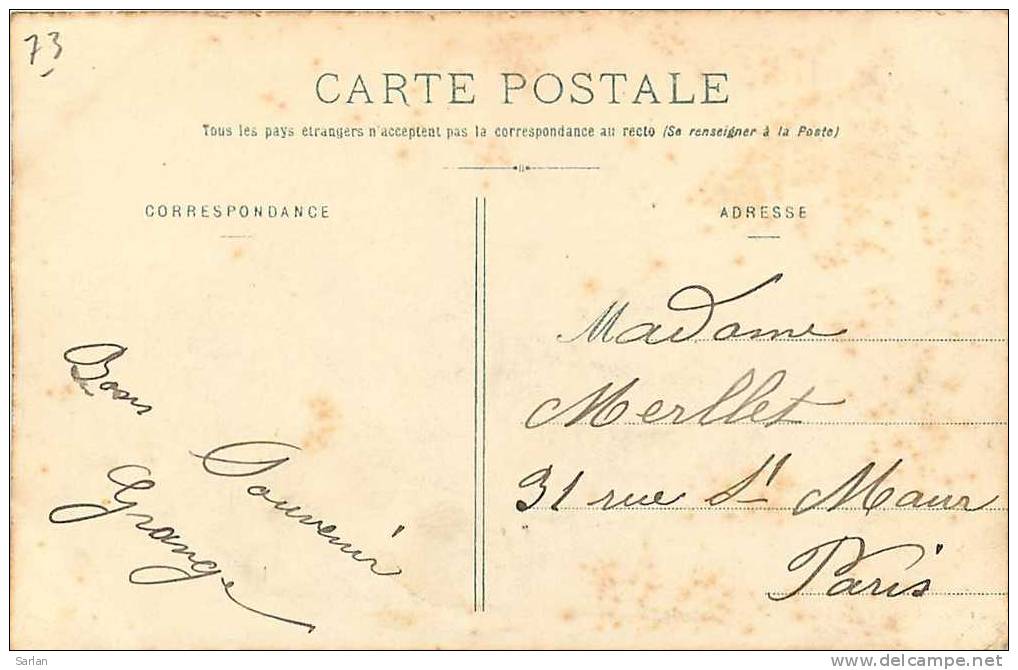 73
CARTE POSTALE
Tous les pays étrangers n'acceptent pas la correspondance au recto (Se renseigner à la Poste)
CORRESPONDANCE
Bons
Souvenir
Grange
ADRESSE
Madame
Merllet
31 rue St Maur
Paris
Sarlan
delcampe.net